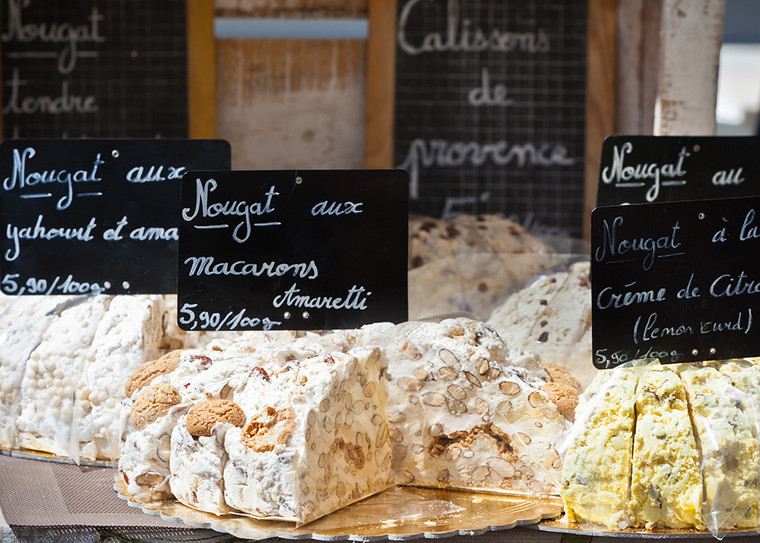 Nougat
tendre
Calissons
de
provence
Nougat aux
yahourt et ama
5,90/100g
Nougat aux
Macarons
Amaretti
5,90/100g
Nougat au
Nougat à la
Crème de Citro
(lemon curd)
5,90/100g